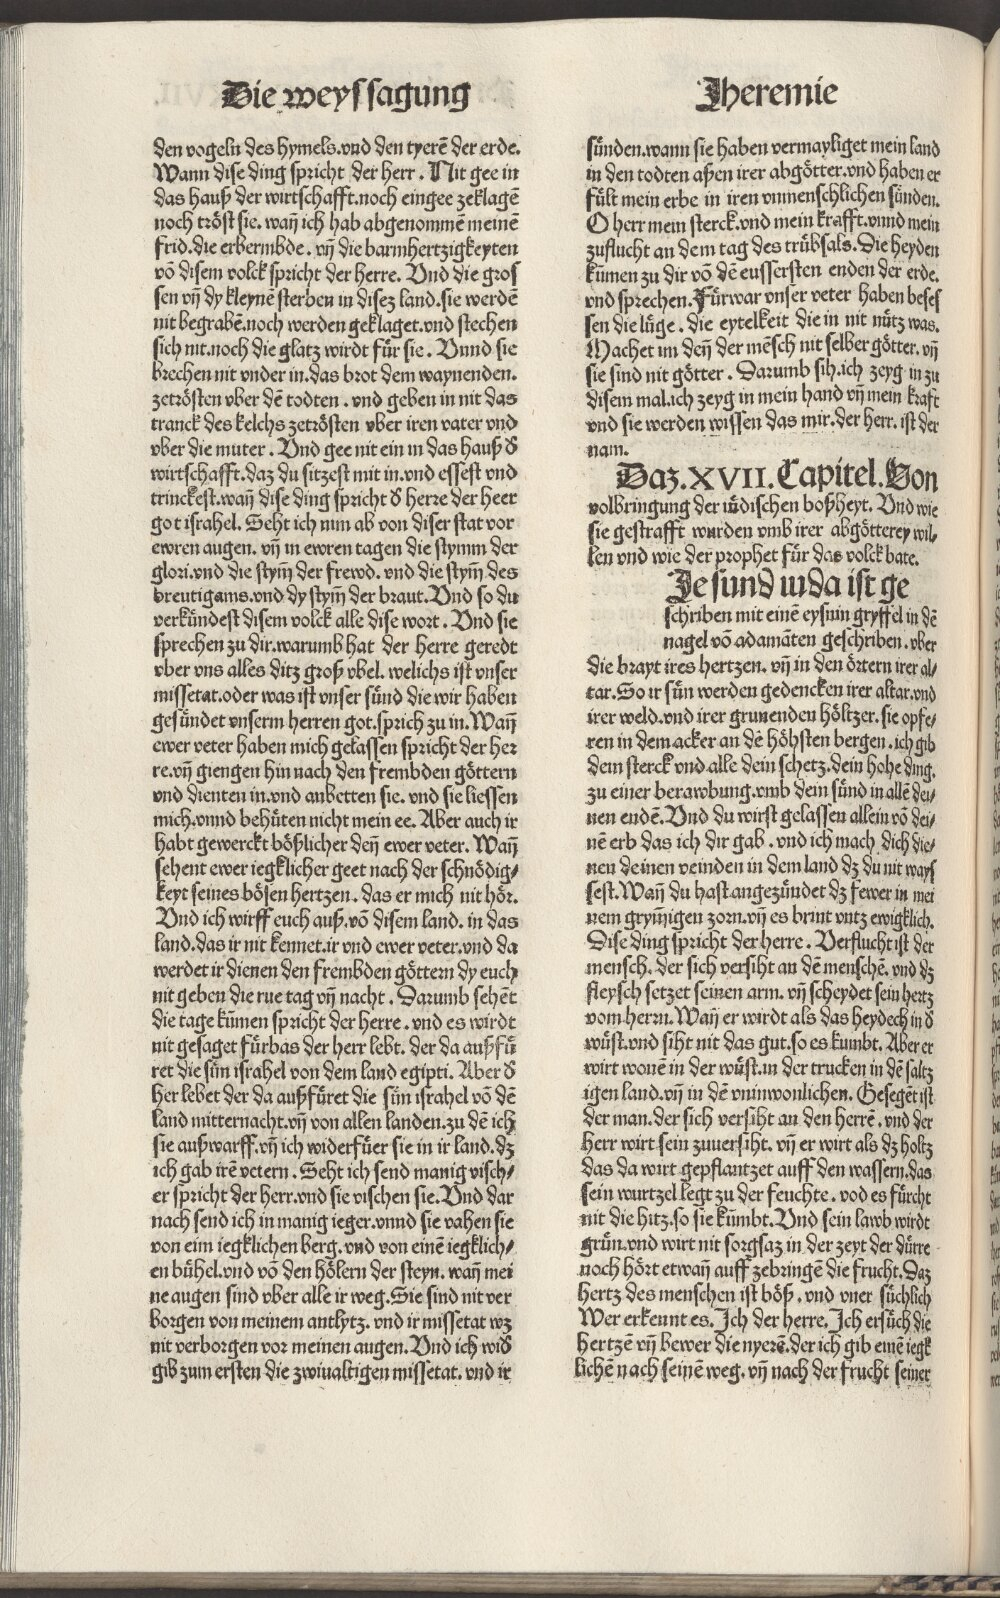 Die weyssagung
Jheremie
den vogeln des hymels.vnd den tyerē der erde.
Wann dise ding spricht der herr . Nit gee in
das hauß der wirtschafft.noch eingee zeklagē
noch tröst sie. wañ ich hab abgenommē meinē
frid.die erbermbde . vñ die barmhertzigkeyten
vō disem volck spricht der herre. Vnd die gros
sen vñ dy kleynē sterben in disez land.sie werdē
nit begrabē.noch werden geklaget.vnd stechen
sich nit.noch die glatz wirdt für sie . Vnnd sie
brechen nit vnder in.das brot dem waynenden.
zetrösten vber dē todten . vnd geben in nit das
tranck des kelchs zetrösten vber iren vater vnd
vber die muter . Vnd gee nit ein in das hauß ď
wirtschafft.daz du sitzest mit in.vnd essest vnd
trinckest.wañ dise ding spricht ď herre der heer
got israhel. Seht ich nim ab von diser stat vor
ewren augen. vñ in ewren tagen die stymm der
glori.vnd die stym̄ der frewd. vnd die stym̄ des
breutigams.vnd dy stym̄ der braut.Vnd so du
verkündest disem volck alle dise wort . Vnd sie
sprechen zu dir.warumb hat der herre geredt
vber vns alles ditz groß vbel. welichs ist vnser
missetat.oder was ist vnser sünd die wir haben
gesündet vnserm herren got.sprich zu in.Wañ
ewer veter haben mich gelassen spricht der her
re.vñ giengen hin nach den frembden göttern
vnd dienten in.vnd anbetten sie. vnd sie liessen
mich.vnnd behüten nicht mein ee. Aber auch ir
habt gewerckt bößlicher deñ ewer veter. Wañ
sehent ewer iegklicher geet nach der schnödig⸗
keyt seines bösen hertzen . das er mich nit hör.
Vnd ich wirff euch auß.vō disem land. in das
land.das ir nit kennet.ir vnd ewer veter.vnd da
werdet ir dienen den frembden göttern dy euch
nit geben die rue tag vñ nacht . Darumb sehēt
die tage kūmen spricht der herre . vnd es wirdt
nit gesaget fürbas der herr lebt. der da außfü
ret die sün israhel von dem land egipti. Aber ď
her lebet der da außfüret die sün israhel vō dē
land mitternacht.vñ von allen landen.zu dē ich
sie außwarff.vñ ich widerfüer sie in ir land.dz
ich gab irē vetern . Seht ich send manig visch⸗
er spricht der herr.vnd sie vischen sie.Vnd dar
nach send ich in manig ieger.vnnd sie vahen sie
von eim iegklichen berg.vnd von einē iegklich⸗
en bühel.vnd vō den hölern der steyn. wañ mei
ne augen sind vber alle ir weg.Sie sind nit ver
borgen von meinem antlytz. vnd ir missetat wz
nit verborgen vor meinen augen. Vnd ich wiď
gib zum ersten die zwiualtigen missetat. vnd ir
sünden.wann sie haben vermayliget mein land
in den todten aßen irer abgötter.vnd haben er
fült mein erbe in iren vnmenschlichen sünden.
O herr mein sterck.vnd mein krafft.vnnd mein
zuflucht an dem tag des trübsals. Die heyden
kūmen zu dir vō dē eussersten enden der erde.
vnd sprechen.Fürwar vnser veter haben beses
sen die lüge . die eytelkeit die in nit nütz was.
Machet im deñ der mēsch nit selber götter.vñ
sie sind nit götter . Darumb sih.ich zeyg in zu
disem mal.ich zeyg in mein hand vñ mein kraft
vnd sie werden wissen das mir.der herr. ist der
nam.
Daz.XVII.Capitel.Von
volbringung der iüdischen boßheyt. Vnd wie
sie gestrafft wurden vmb irer abgötterey wil⸗
len vnd wie der prophet für das volck bate.
Je sund iuda ist ge
schriben mit einē eysnin gryffel in dē
nagel vō adamāten geschriben.vber
die brayt ires hertzen. vñ in den örtern irer al⸗
tar.So ir sün werden gedencken irer altar.vnd
irer weld.vnd irer grunenden höltzer.sie opfe⸗
ren in dem acker an dē höhsten bergen.ich gib
dein sterck vnd alle dein schetz.dein hohe ding.
zu einer berawbung.vmb dein sünd in allē dei⸗
nen endē.Vnd du wirst gelassen allein vō dei⸗
nē erb das ich dir gab . vnd ich mach dich die⸗
nen deinen veinden in dem land dz du nit ways
sest.Wañ du hast angezündet dz fewer in mei
nem grym̄igen zorn.vñ es brint vntz ewigklich.
Dise ding spricht der herre . Verflucht ist der
mensch. der sich versiht an dē menschē. vnd dz
fleysch setzet seinen arm. vñ scheydet sein hertz
vom herrn.Wañ er wirdt als das heydech in ď
wüst.vnd siht nit das gut.so es kumbt. Aber er
wirt wonē in der wüst.in der trucken in dē saltz
igen land.vñ in dē vninwonlichen. Gesegēt ist
der man.der sich versiht an den herrē . vnd der
herr wirt sein zuuersiht. vñ er wirt als dz holtz
das da wirt gepflantzet auff den wassern.das
sein wurtzel legt zu der feuchte . vnd es fürcht
nit die hitz.so sie kūmbt.Vnd sein lawb wirdt
grün.vnd wirt nit sorgsaz in der zeyt der dürre
noch hört etwañ auff zebringē die frucht.Daz
hertz des menschen ist böß . vnd vner süchlich
Wer erkennt es. Jch der herre. Jch ersüch die
hertzē vñ bewer die nyerē.der ich gib einē iegk
lichē nach seinē weg. vñ nach der frucht seiner